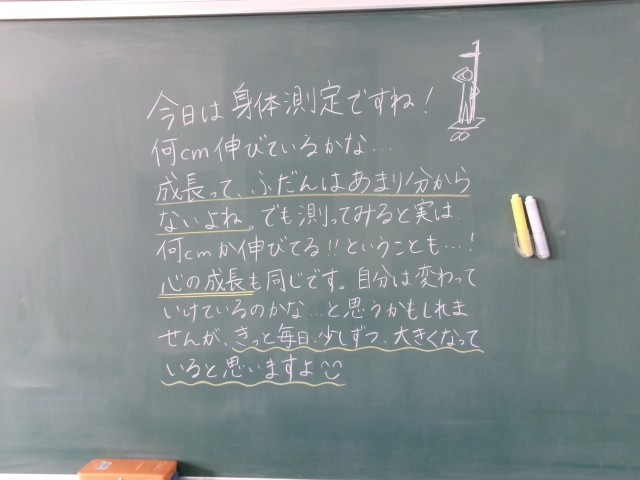 今日は身体測定ですね！
何cm伸びているかな…
成長って、ふだんはあまり分から
ないよね。でも測ってみると実は
何cmか伸びてる!!ということも…！
心の成長も同じです。自分は変わって
いけているのかな…と思うかもしれま
せんが、きっと毎日、少しずつ、大きくなって
いると思いますよ